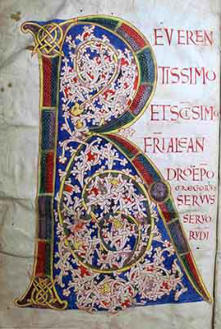 REVEREN
TISSIMO
ETSC̄ISIMO
FR̄IALEAN
DRO·EP̄O
GREGORIUS
SERVUS
SERVO
RV̄DĪ